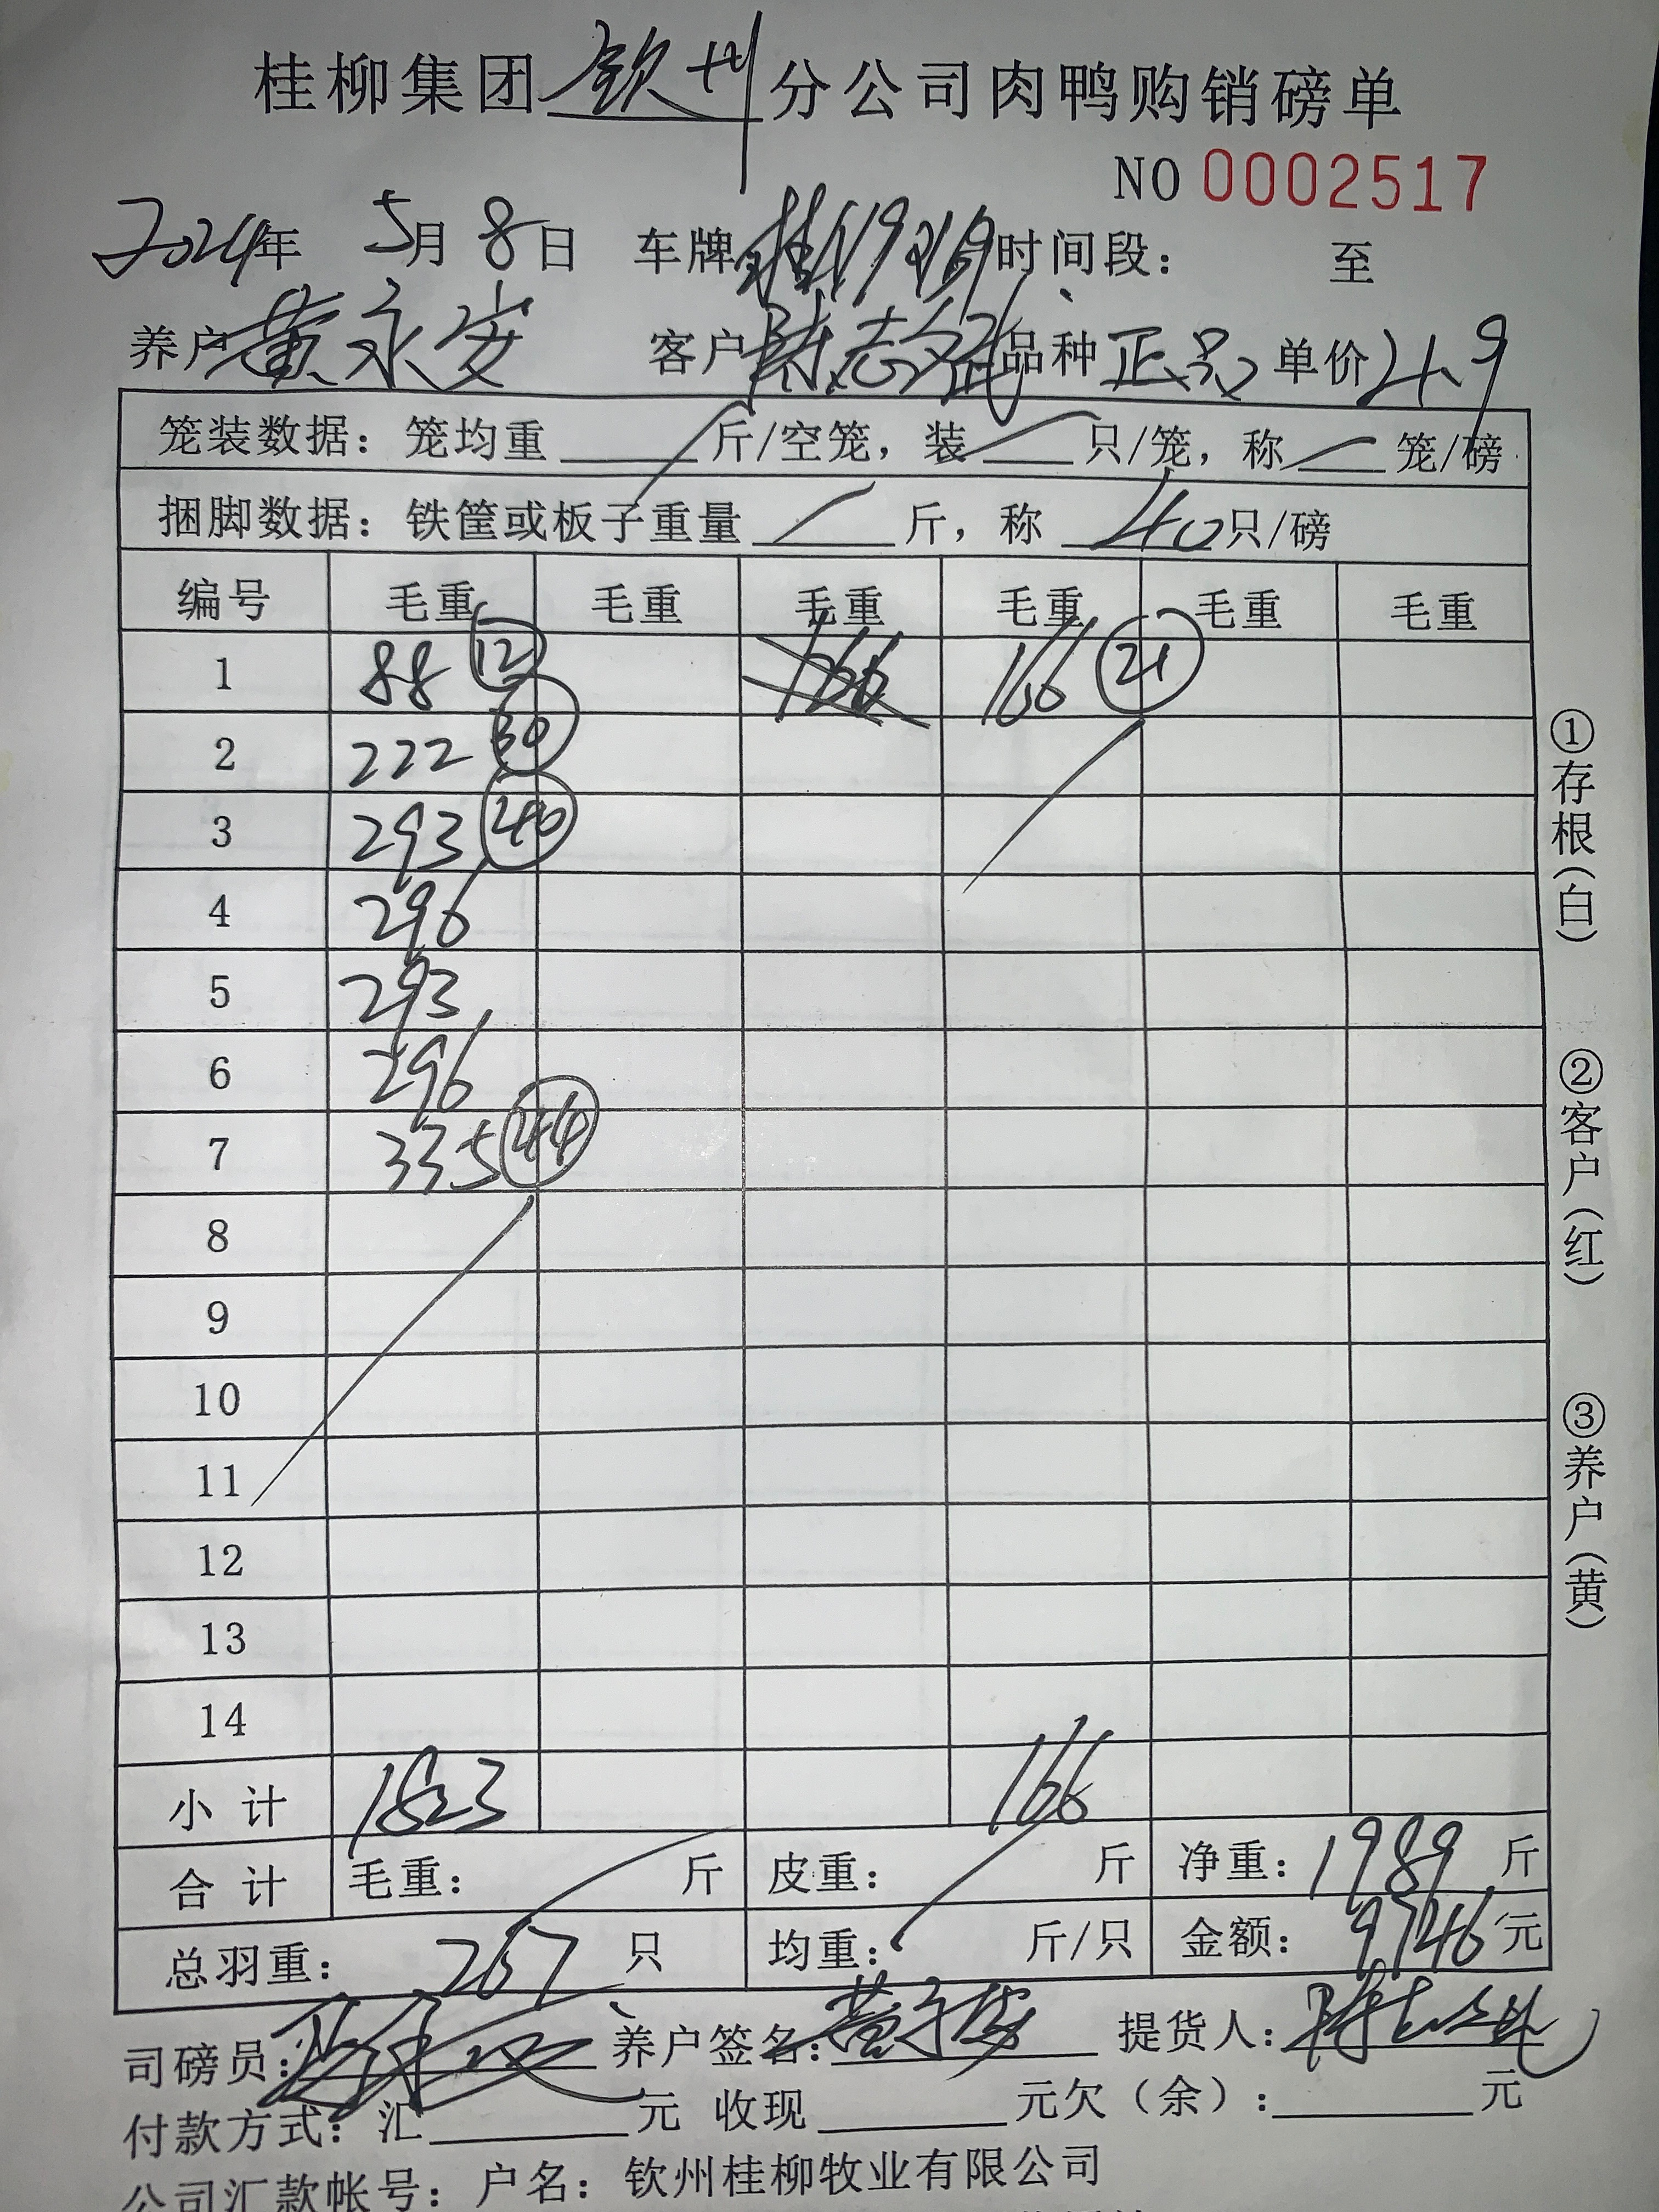 桂柳集团钦州分公司肉鸭购销磅单
NO 0002517
2024年 5月 8日 车牌 时间段： 至
养户 黄永安 客户 陈志 品种 正品 单价 4.9
笼装数据：笼均重 斤/空笼，装 只/笼，称 笼/磅
捆脚数据：铁筐或板子重量 斤，称 40 只/磅
编号 毛重 毛重 毛重 毛重 毛重 毛重
1 88 12 166 166 21
2 222 30
3 293 40
4 296
5 293
6 296
7 335 44
8
9
10
11
12
13
14
小计 1823 166
合计 毛重： 斤 皮重： 斤 净重：1989 斤
总羽重： 267 只 均重： 斤/只 金额：9746元
司磅员： 养户签名：黄永安 提货人：陈志
付款方式：汇 元 收现 元欠（余）： 元
公司汇款帐号：户名：钦州桂柳牧业有限公司
①存根（白）
②客户（红）
③养户（黄）